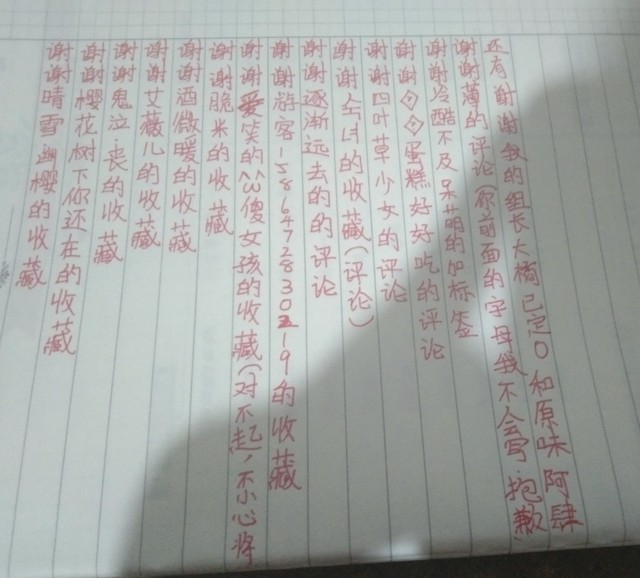 谢谢晴雪幽樱的收藏
谢谢樱花树下你还在的收藏
谢谢鬼泣·丧的收藏
谢谢艾薇儿的收藏
谢谢酒微暖的收藏
谢谢脆米的收藏
谢谢爱笑的^3^傻女孩的收藏(对不起,不小心将
谢谢游客1586472830219的收藏
谢谢逐渐远去的的评论
谢谢소녀的收藏(评论)
谢谢四叶草少女的评论
谢谢◇◇蛋糕好好吃的评论
谢谢冷酷不及呆萌的加标签
谢谢薄的评论(你前面的字母我不会写·抱歉
还有谢谢我的组长大橘已定0和原味阿肆